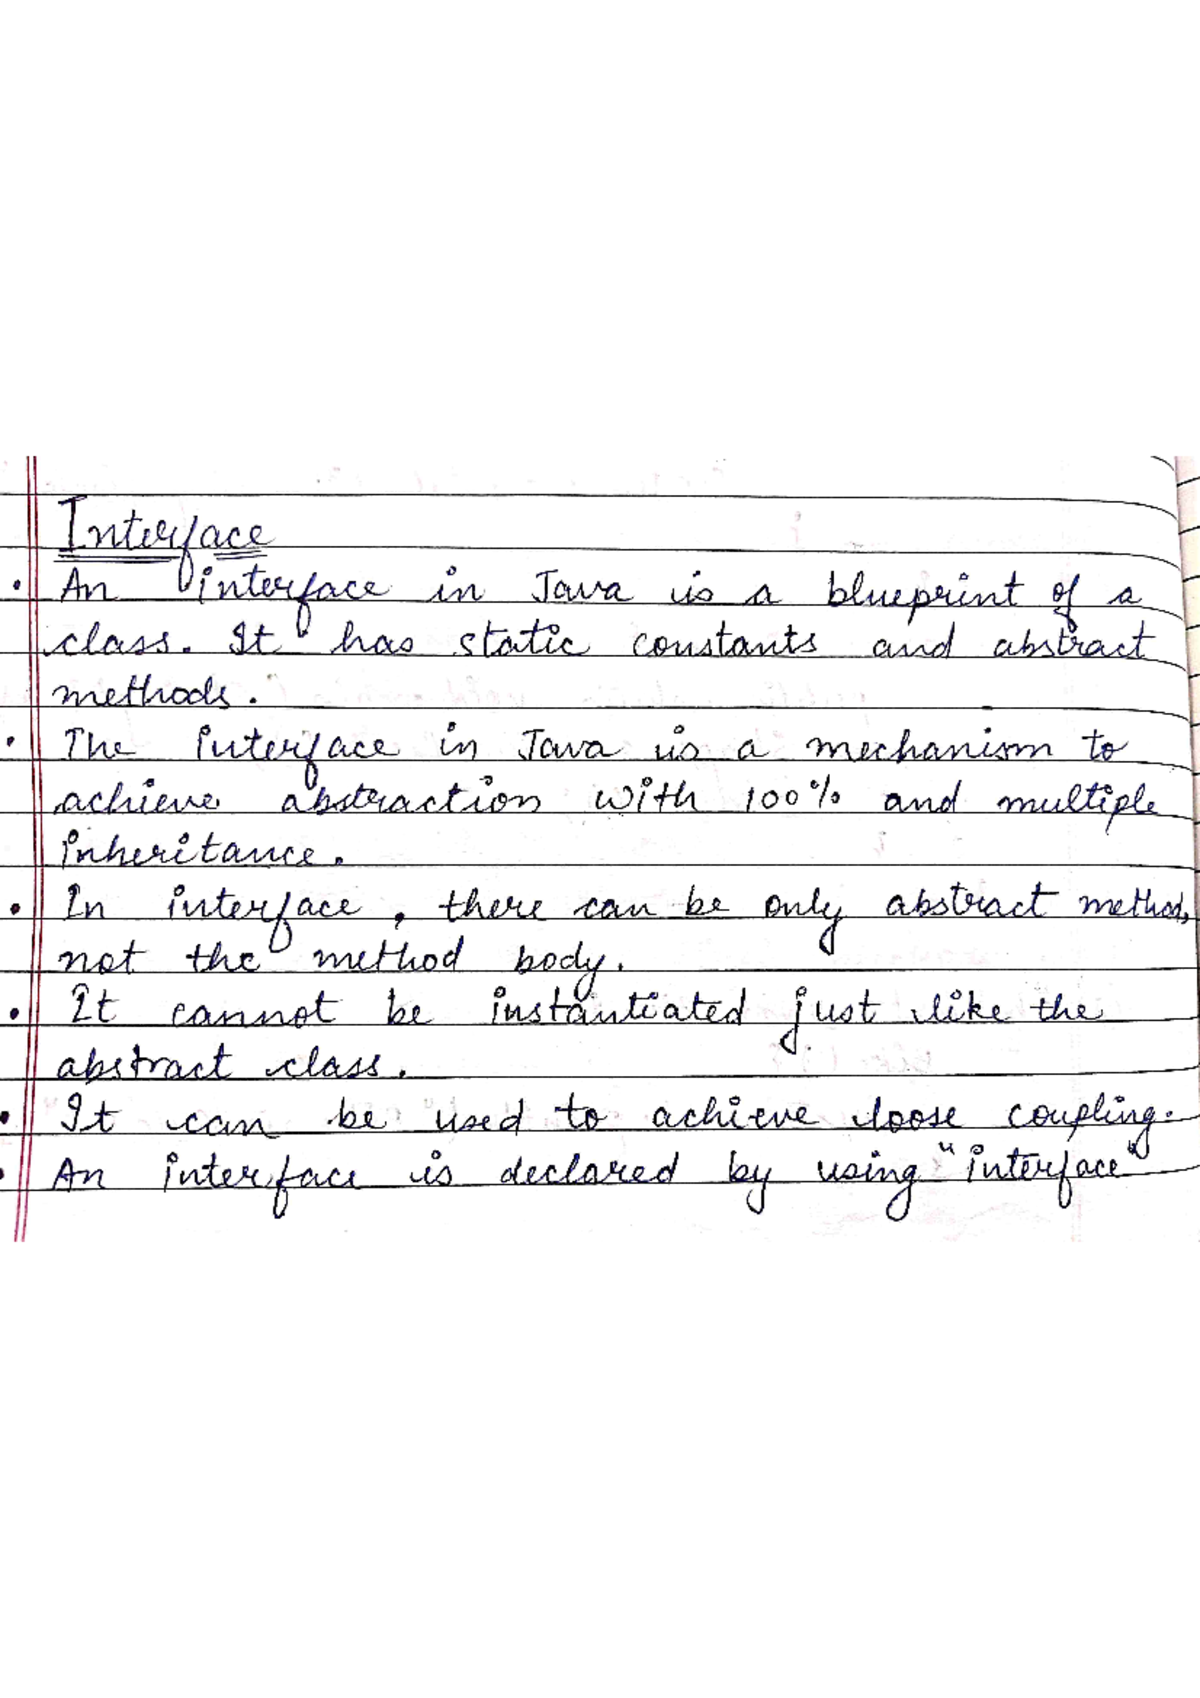 Interface
• An interface in Java is a blueprint of a
class. It has static constants and abstract
methods.
• The interface in Java is a mechanism to
achieve abstraction with 100% and multiple
inheritance.
• In interface, there can be only abstract method,
not the method body.
• It cannot be instantiated just like the
abstract class.
• It can be used to achieve loose coupling.
• An interface is declared by using "interface"